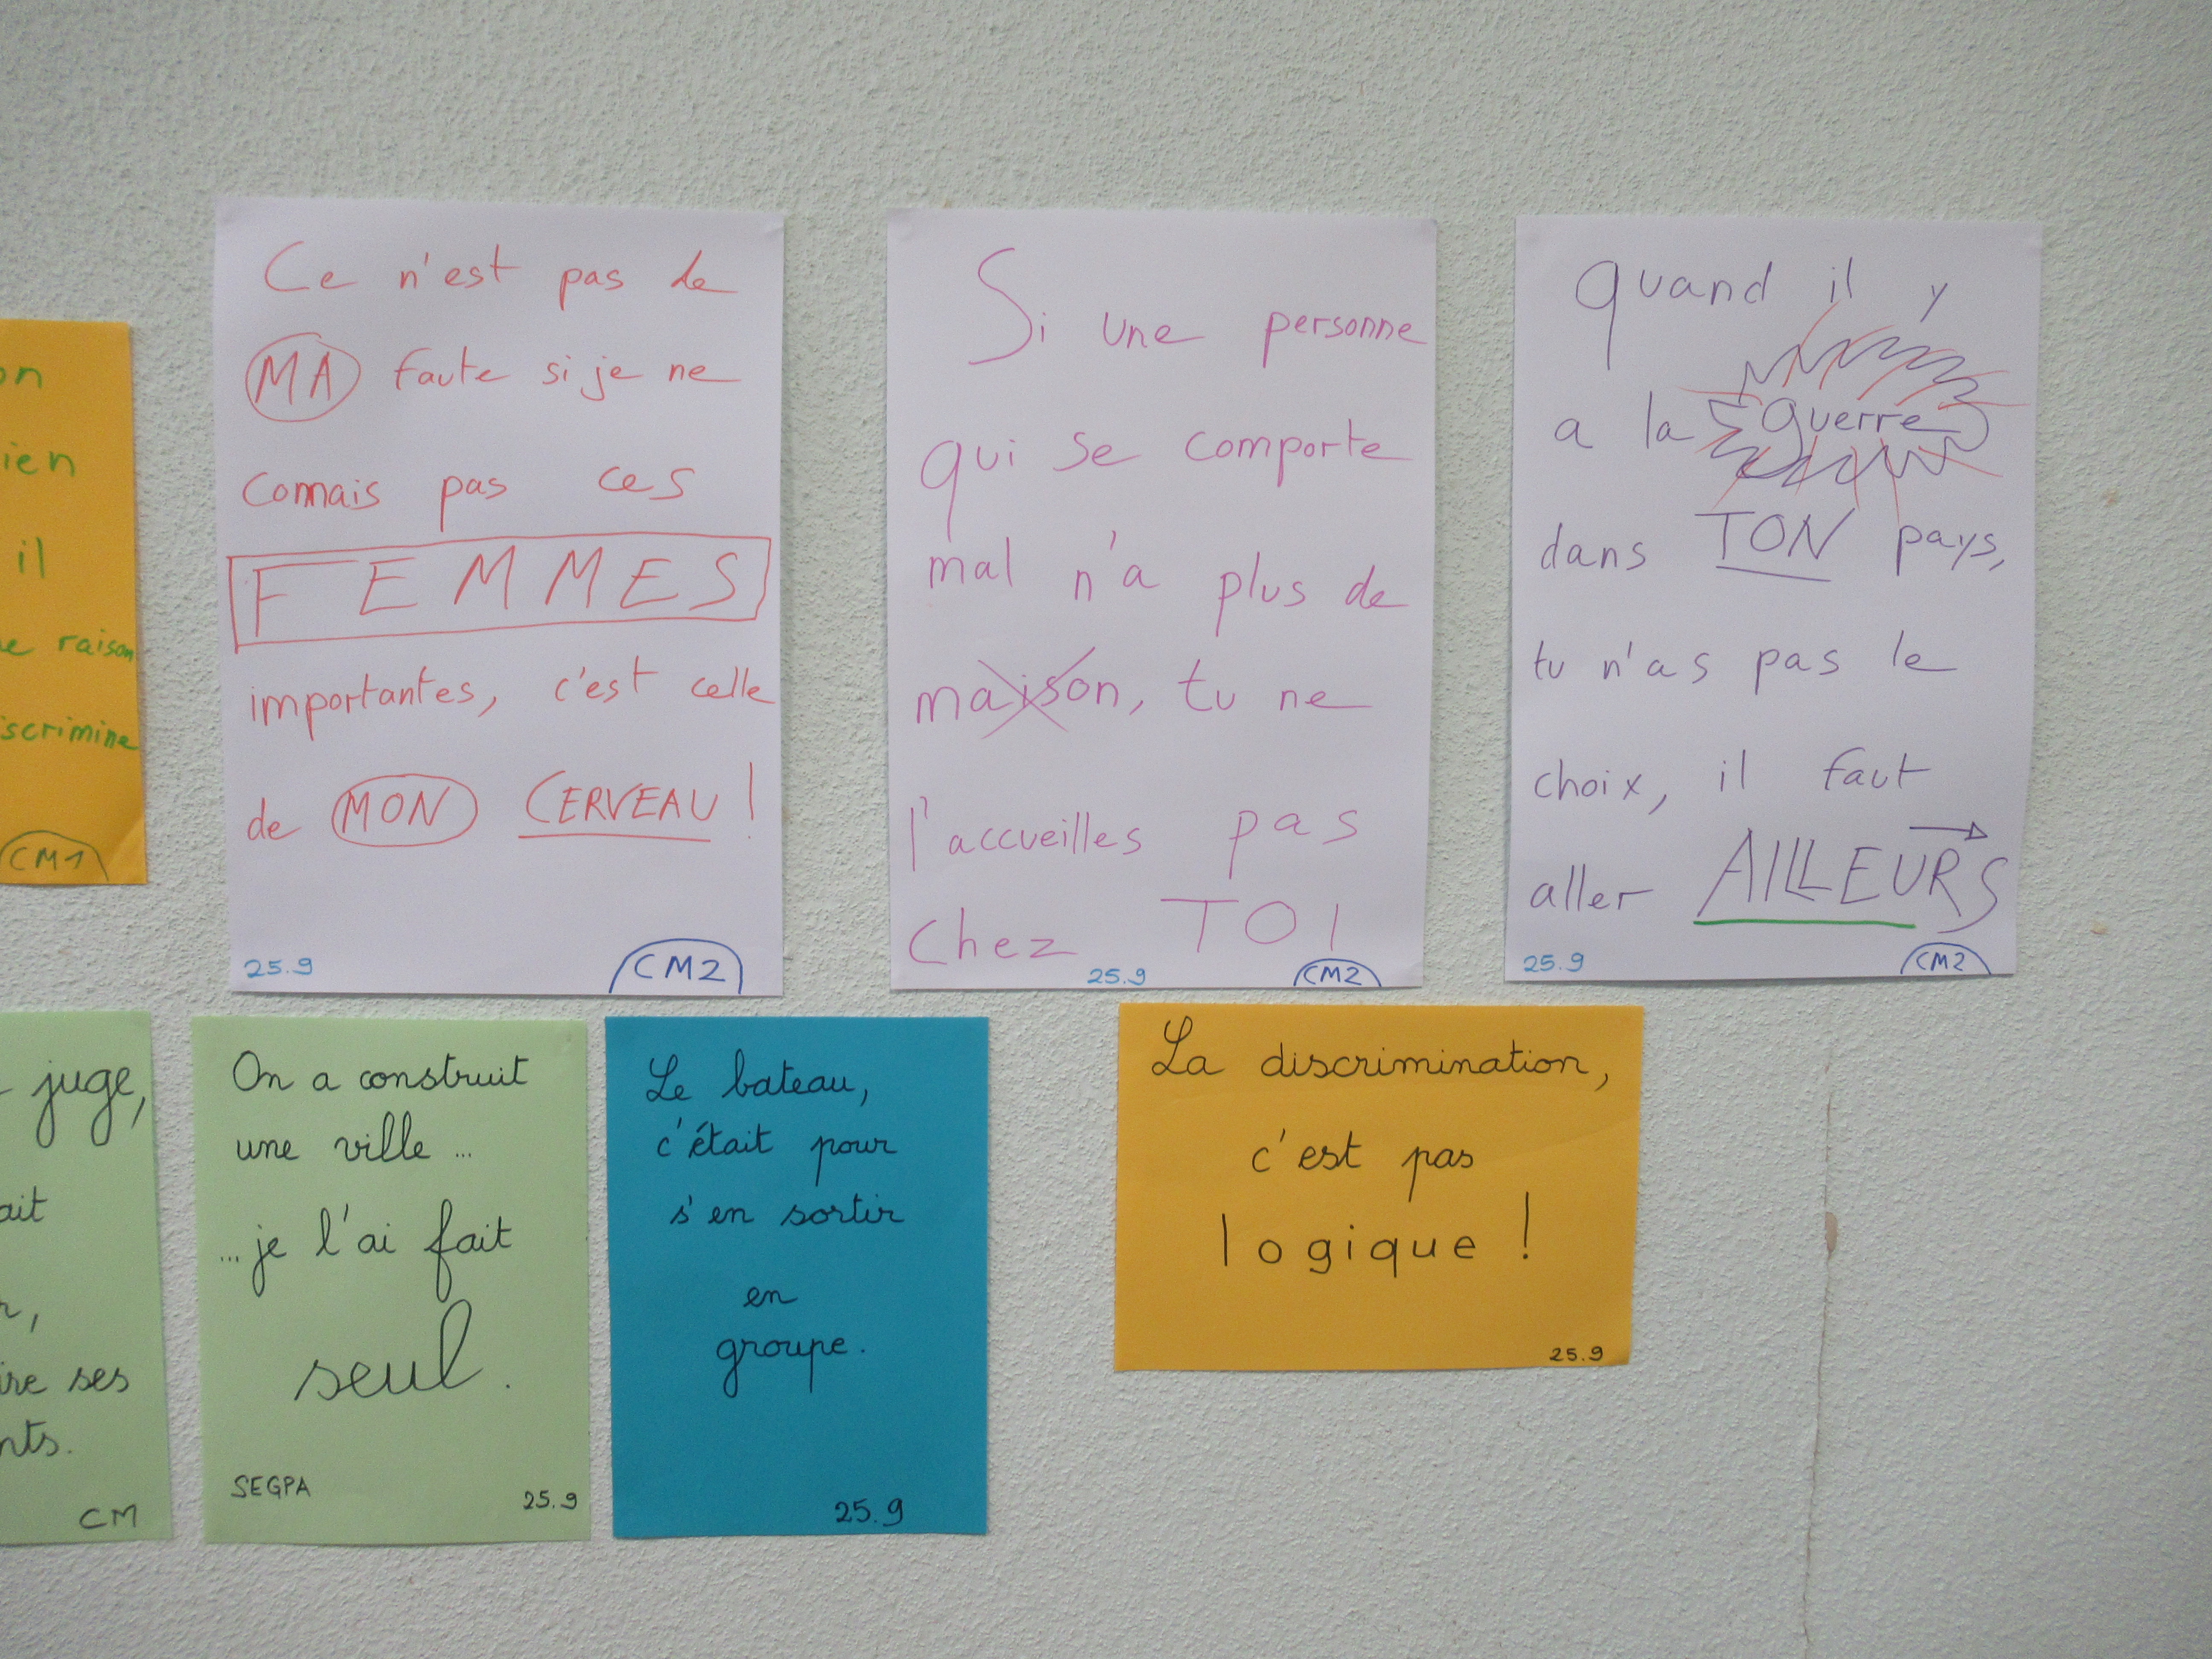 on
ien
il
raison
iscrimine
CM1
Ce n'est pas de
MA faute si je ne
connais pas ces
FEMMES
importantes, c'est celle
de MON CERVEAU !
25.9
CM2
Si une personne
qui se comporte
mal n'a plus de
maison, tu ne
l'accueilles pas
chez TOI
25.9
CM2
quand il y
a la guerre
dans TON pays,
tu n'as pas le
choix, il faut
aller AILLEURS
25.9
CM2
juge,
ait
ses
nts.
CM
On a construit
une ville ...
... je l'ai fait
seul.
SEGPA
25.9
Le bateau,
c'était pour
s'en sortir
en
groupe.
25.9
La discrimination,
c'est pas
logique !
25.9